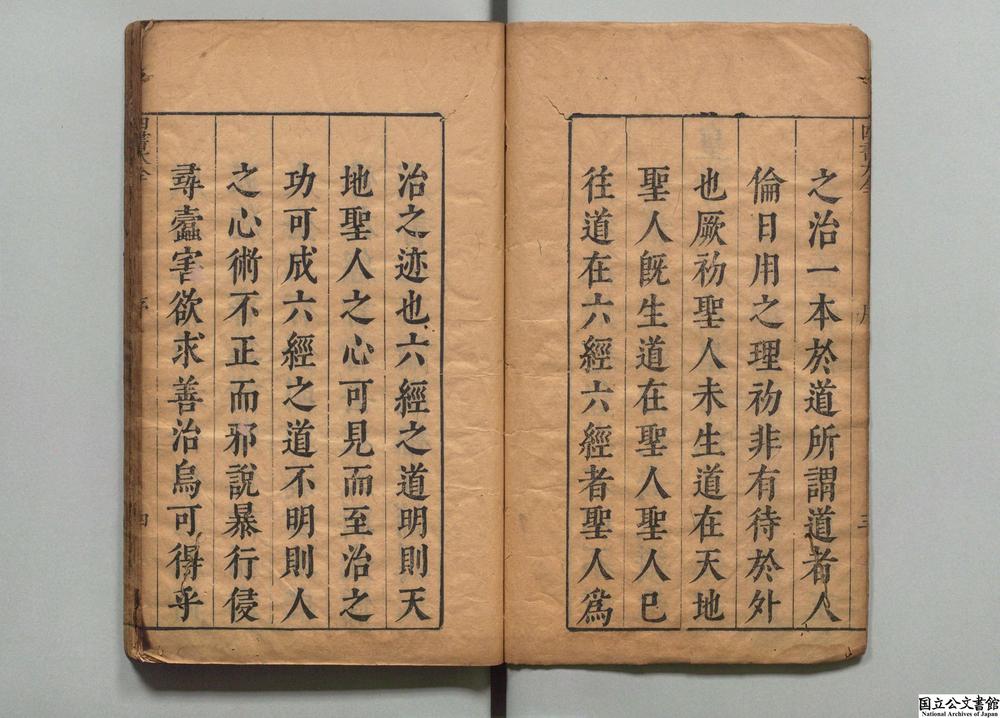 之治一本於道所謂道者人
倫日用之理初非有待於外
也厥初聖人未生道在天地
聖人旣生道在聖人聖人已
往道在六經六經者聖人爲
治之迹也六經之道明則天
地聖人之心可見而至治之
功可成六經之道不明則人
之心術不正而邪說暴行侵
尋蠹害欲求善治烏可得乎
四書大全
序
四
国立公文書館
National Archives of Japan